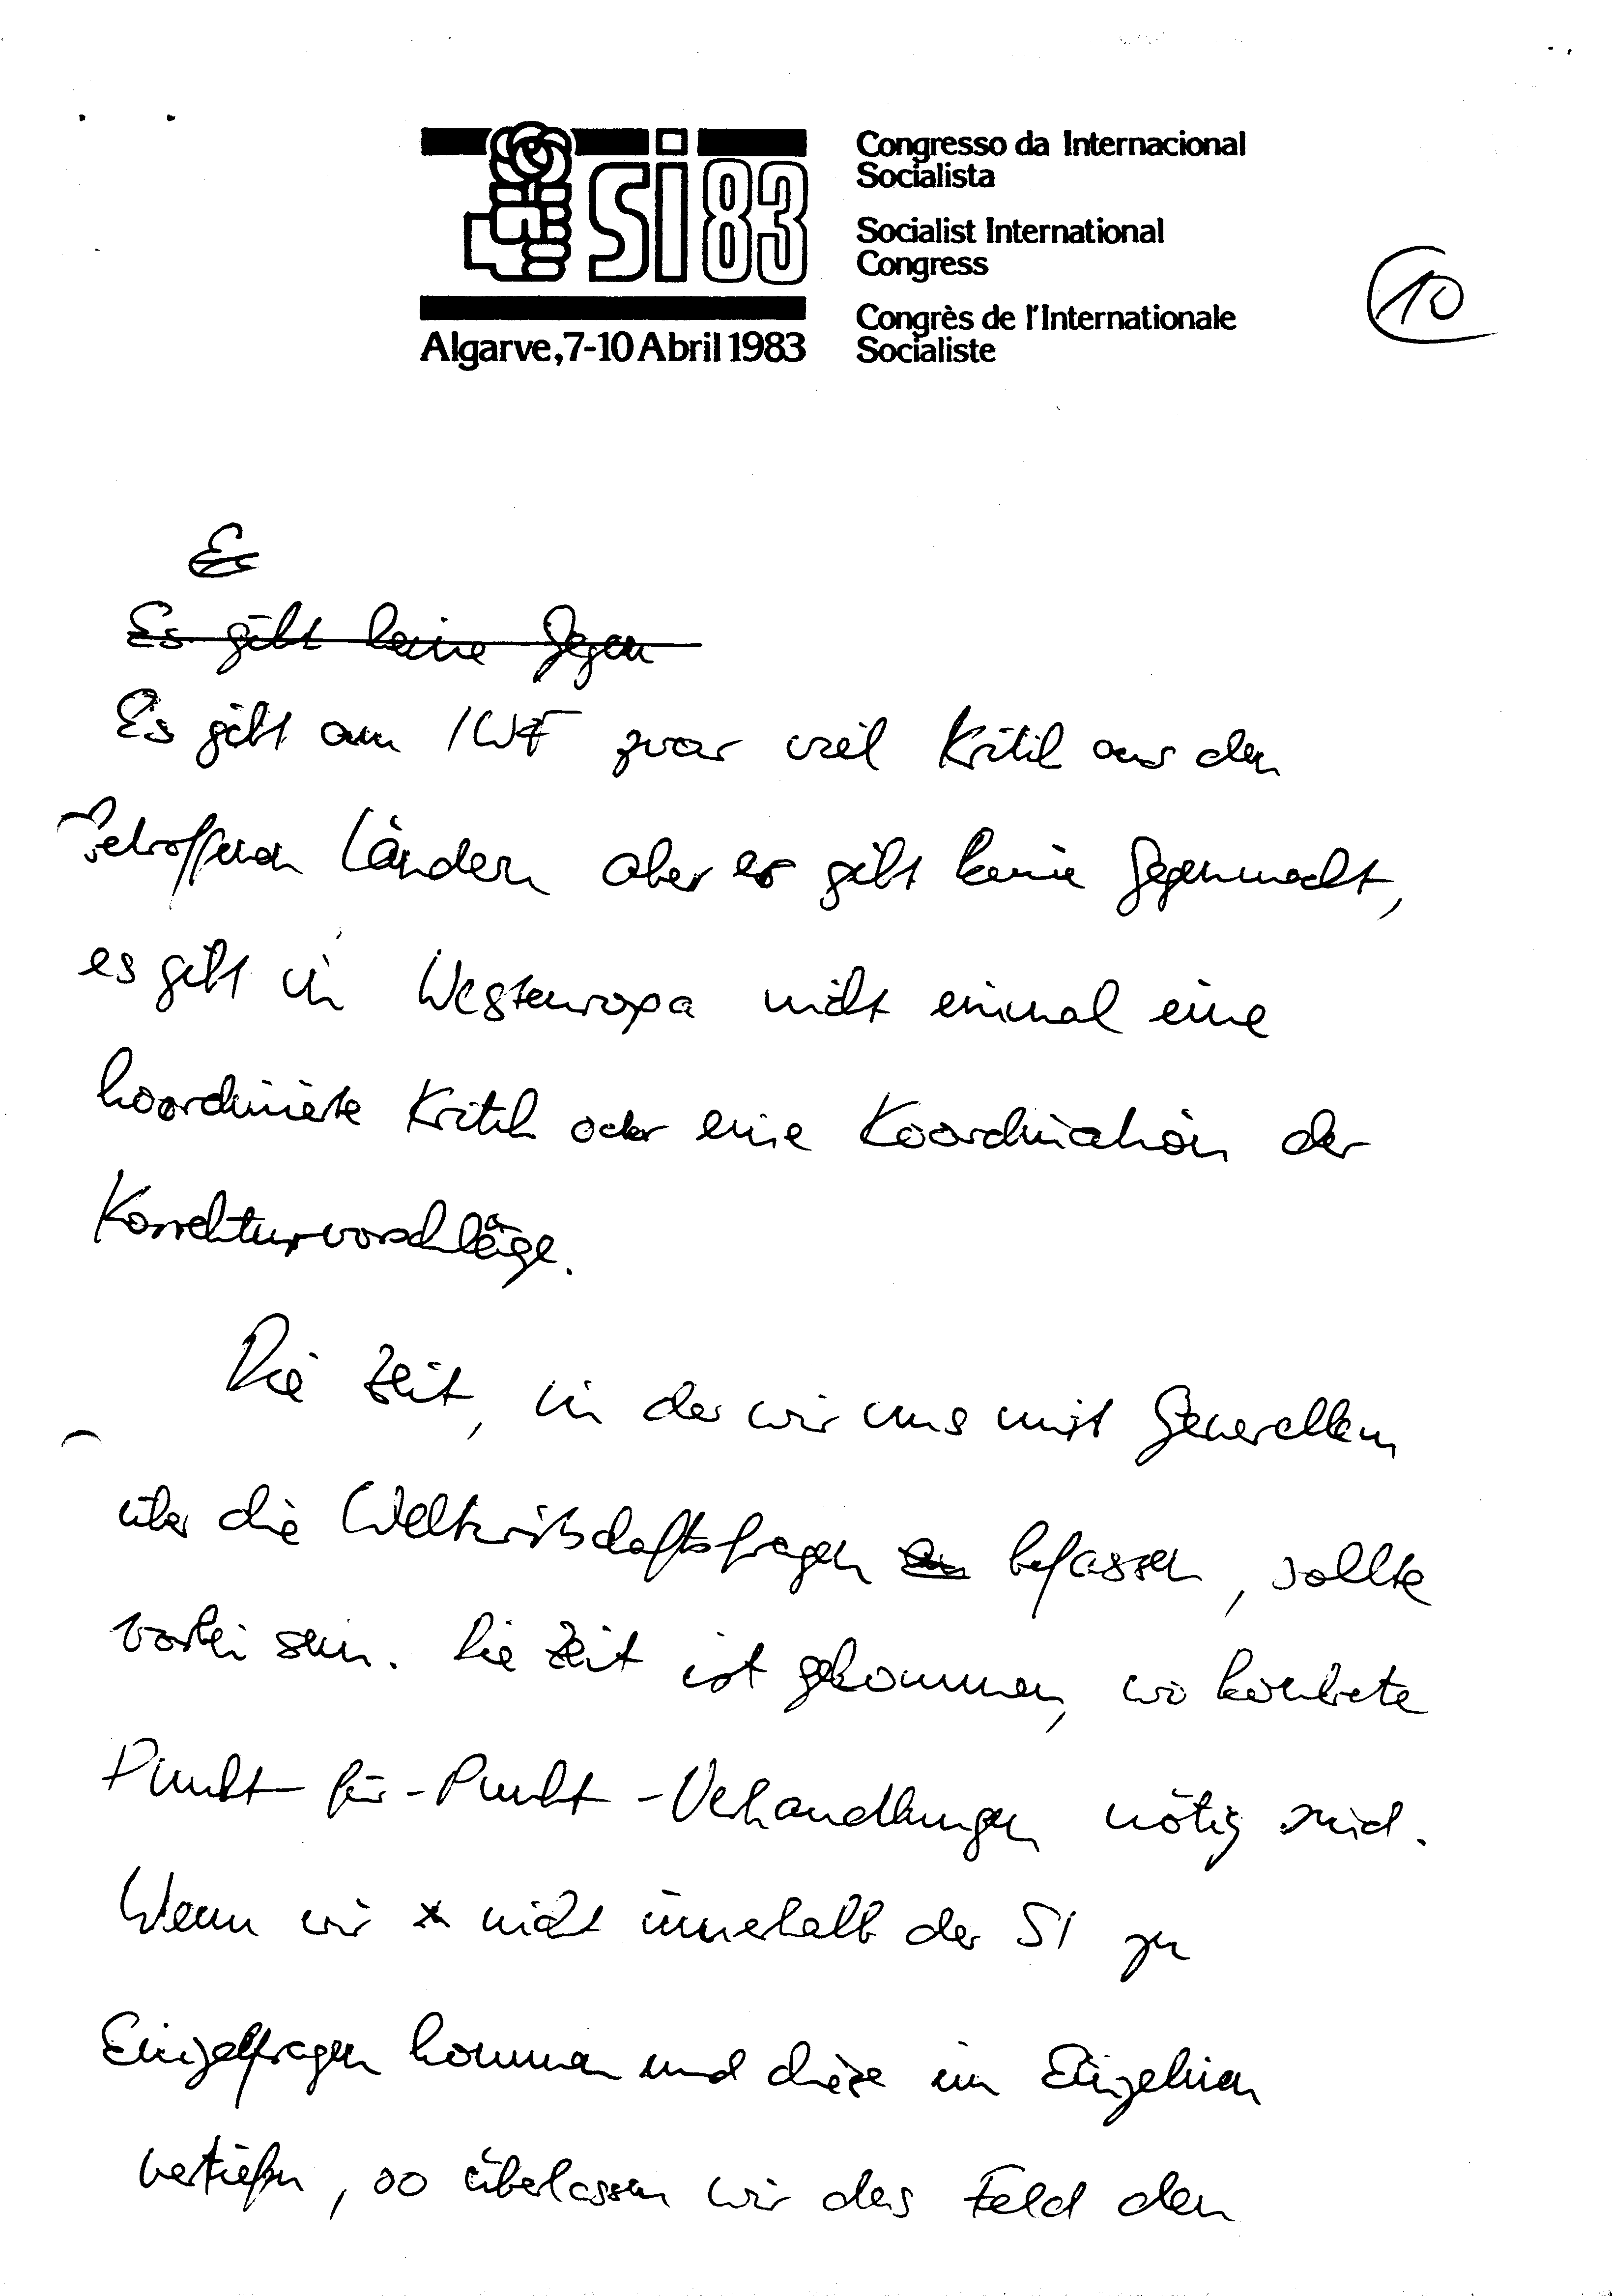 SI 83
Algarve, 7-10 Abril 1983
Congresso da Internacional
Socialista
Socialist International
Congress
Congrès de l'Internationale
Socialiste
10
Es
Es gibt keine Gegen
Es gibt am IWF zwar viel Kritik aus den
betroffenen Ländern aber es gibt keine Gegenmacht,
es gibt in Westeuropa nicht einmal eine
koordinierte Kritik oder eine Koordination der
Korrekturvorschläge.
Die Zeit, in der wir uns mit Generellem
über die Weltwirtschaftsfragen befassen, sollte
vorbei sein. Die Zeit ist gekommen, wo konkrete
Punkt-für-Punkt-Verhandlungen nötig sind.
Wenn wir nicht innerhalb der SI zu
Einzelfragen kommen und diese im Einzelnen
vertiefen, so überlassen wir das Feld den